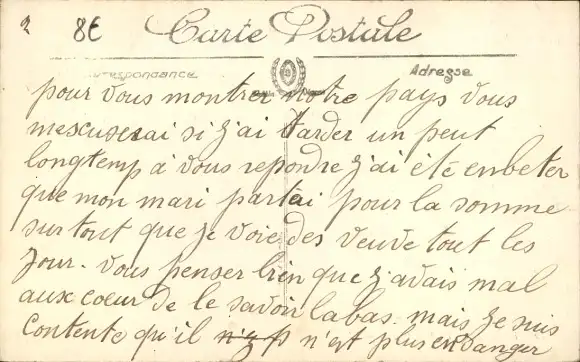 2 8€ Carte Postale
respondance Adresse
pour vous montrer notre pays vous
mescuserai si j'ai tarder un peut
longtemp a vous repondre j'ai été enbeter
que mon mari partai pour la somme
surtout que je voie des veuve tout les
jour. vous penser bien que j'avais mal
aux coeur de le savoir labas. mais je suis
contente qu'il n'est plus en danger